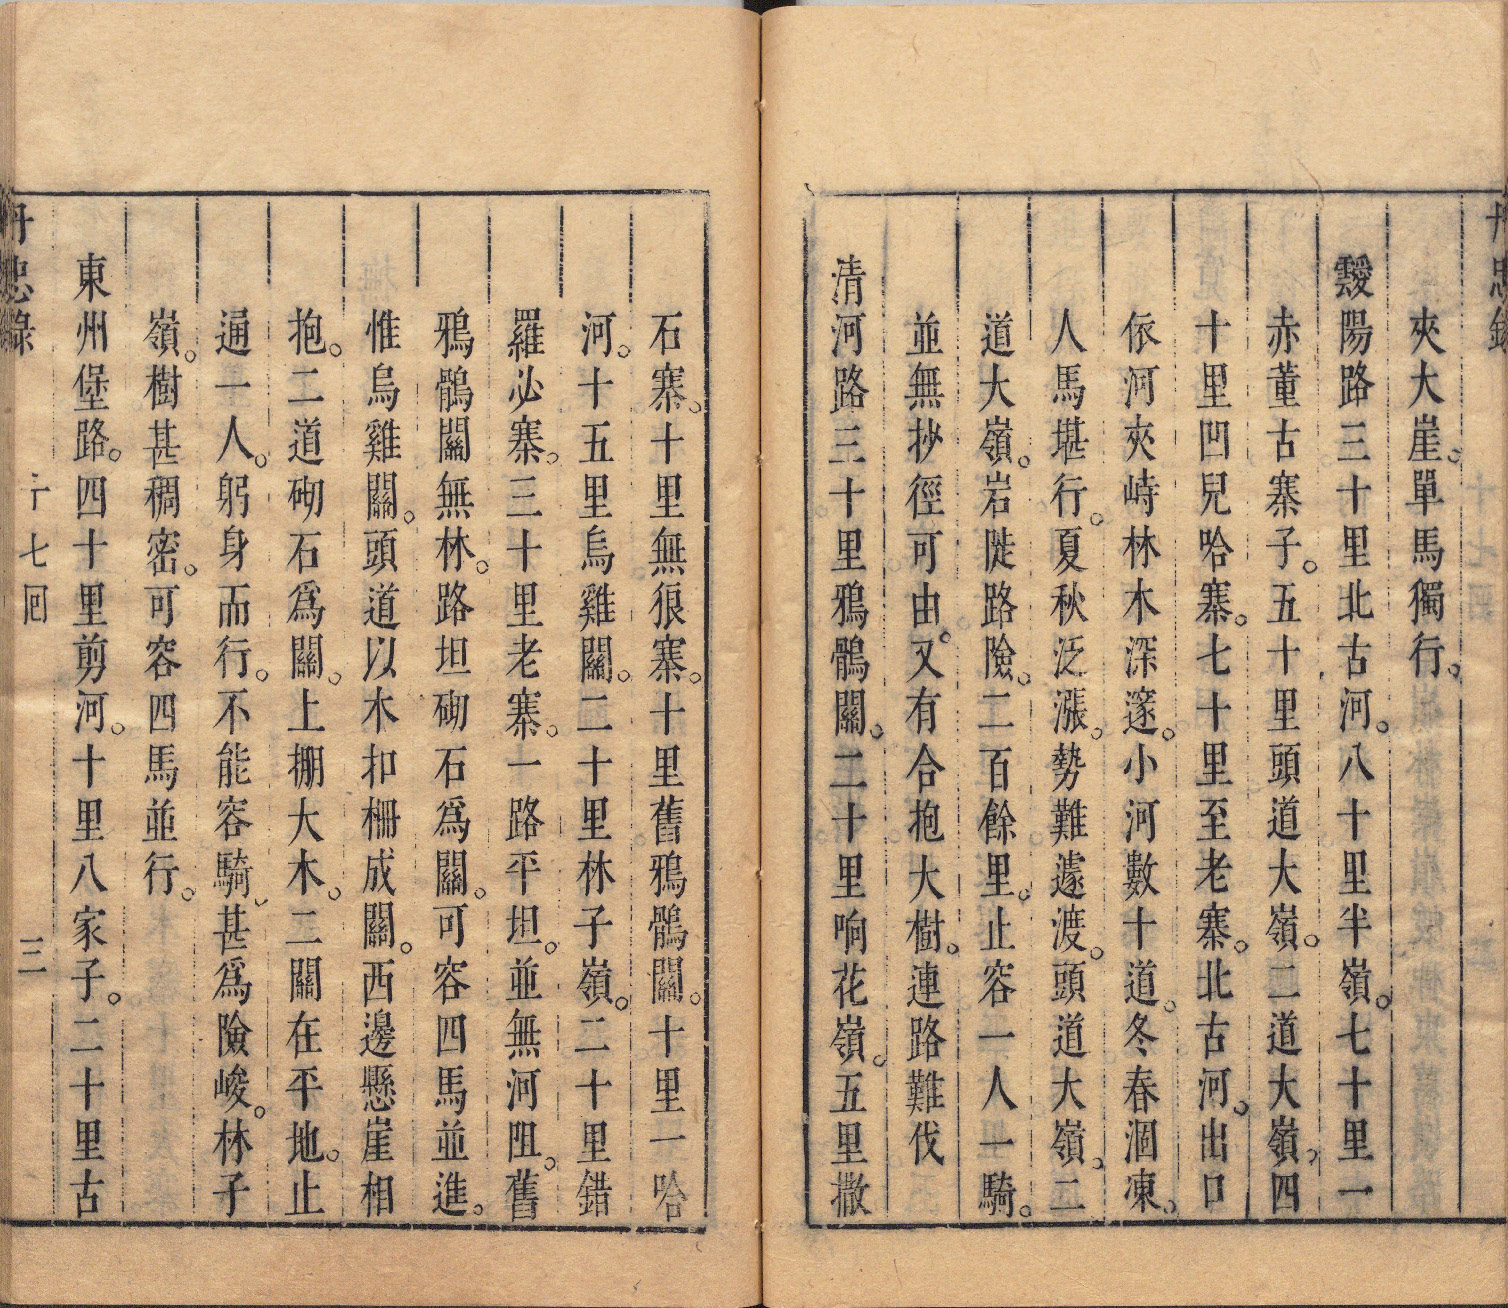 夾大崖。單馬獨行。
靉陽路三十里北古河。八十里半嶺。七十里一
赤董古寨子。五十里頭道大嶺。二道大嶺。四
十里凹兒哈寨。七十里至老寨。北古河。出口
依河夾峙林木深邃。小河數十道。冬春涸凍。
人馬堪行。夏秋泛漲。勢難遽渡。頭道大嶺。二
道大嶺。岩陡路險。二百餘里。止容一人一騎。
並無抄徑可由。又有合抱大樹。連路難伐
清河路三十里鴉鶻關。二十里响花嶺。五里撒
石寨。十里無狠寨。十里舊鴉鶻關。十里一哈
河。十五里烏雞關。二十里林子嶺。二十里錯
羅必寨。三十里老寨。一路平坦。並無河阻。舊
鴉鶻關無林。路坦砌石爲關。可容四馬並進。
惟烏雞關。頭道以木扣柵成關。西邊懸崖相
抱。二道砌石爲關。上棚大木。二關在平地。止
通一人。躬身而行。不能容騎、甚爲險峻。林子
嶺。樹甚稠密。可容四馬並行。
東州堡路。四十里剪河。十里八家子。二十里古
丹忠錄
十七回
三